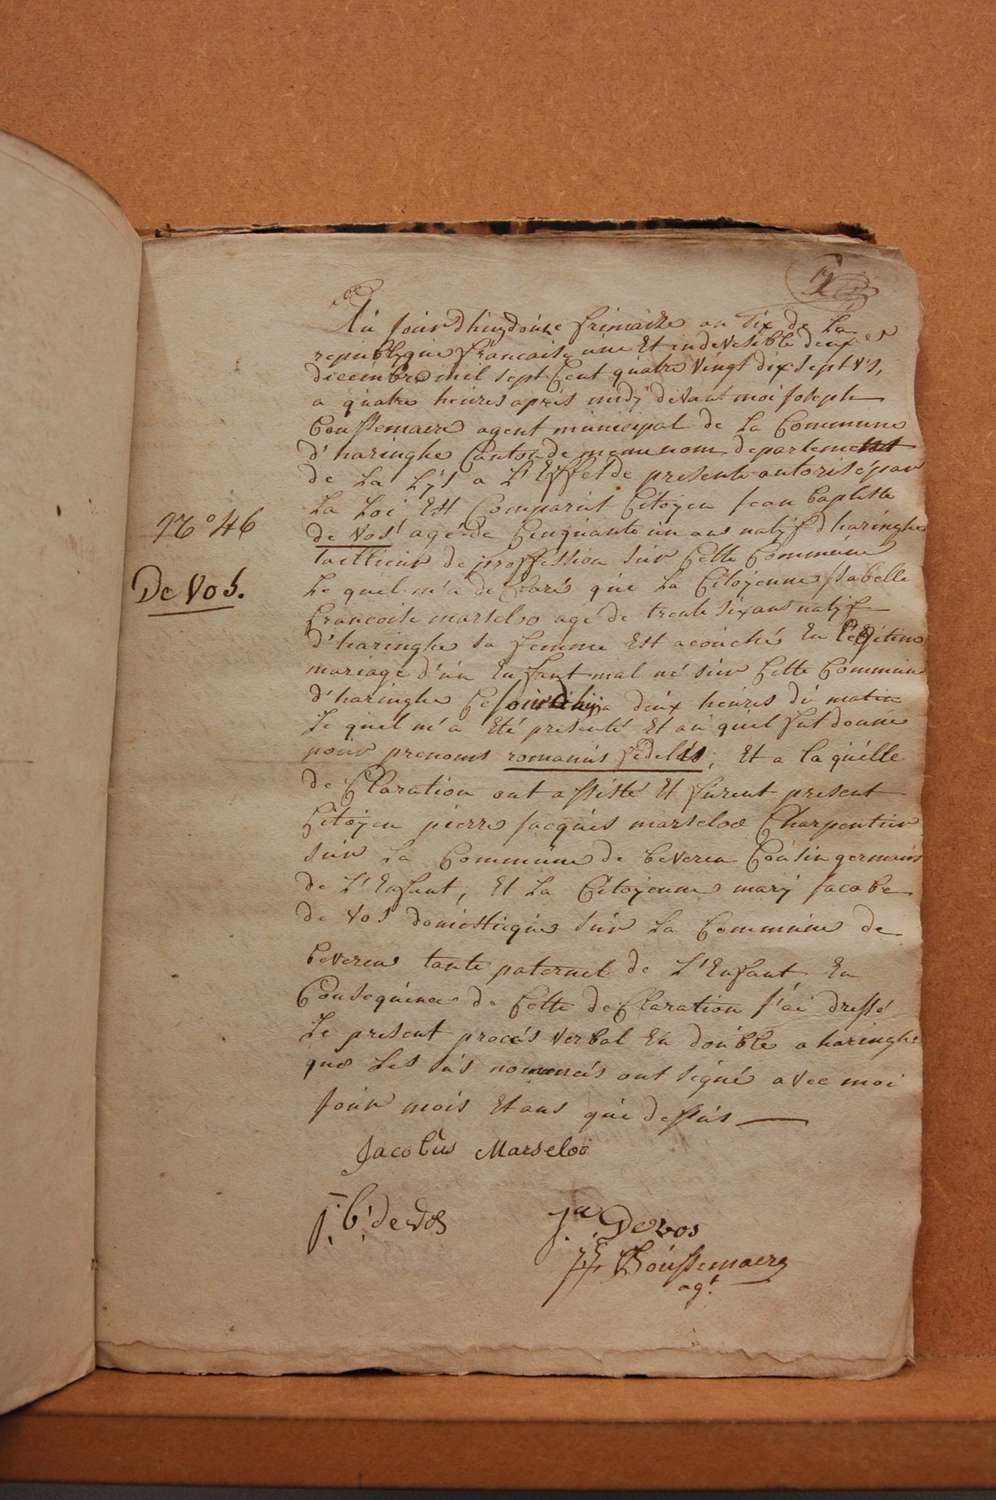 Au jourdhuy douze frimaire an six de La
republique francaise une Et indivisible deux
decembre mil sept Cent quatre vingt dix sept v.s,
a quatre heures apris midy devant moi joseph
Boussemaere agent municipal de La Commune
d'haringhe Canton de meme nom departement
de La Lys a L'Effet de presente autorisé par
La Loi Est Comparut Citoyen jean baptiste
de vos agé de Cinquante un ans natif d'haringhe
taillieur de proffession sur Cette Commune
N.° 46
De Vos.
Le quel m'a declaré que La Citoyenne isabelle
francoise marseloo agé de trente six ans natif
d'haringhe sa femme Est acouché En Legitime
mariage d'un Enfant mal né sur Cette Commune
d'haringhe Ce jourdhij a deux heures di matin
Le quel m'a Eté presenté Et au quel fut donné
pour prenoms romanus fidelis, Et a laquelle
declaration ont assisté Et furent present
Citoyen pierre jacques marseloo Charpentier
sur La Commune de beveren Cousin germains
de L'Enfant, Et La Citoyenne mary jacobe
de vos domestique sur La Commune de
beveren tante paternel de L'Enfant En
Consequence de Cette declaration j'ai dressé
Le present procés verbal En double a haringhe
que Les sus nommés ont signé avec moi
jour mois Et ans que dessus
Jacobus Marseloo
j. b. de vos
ja Devos
Boussemaere
agt.